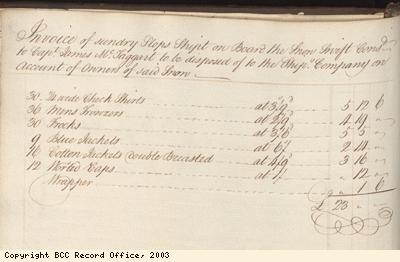 Invoice of sundry Slops Shipt on Board the Snow Swift Comd
to Capt James McTaggart to be disposed of to the Ship's Company on
Account of Owners of said Snow
30 ¾ wide Check Shirts at 3/9 5 12 6
36 Mens Trowzers at 2/9 4 19 "
30 Frocks at 3/6 5 5 "
9 Blue Jackets at 6/ 2 14 "
16 Cotton Jackets double Breasted at 4/9 3 16 "
12 Worsted Caps at 1/ " 12 "
Wrapper " 1 6
£ 23 " "
Copyright BCC Record Office, 2003